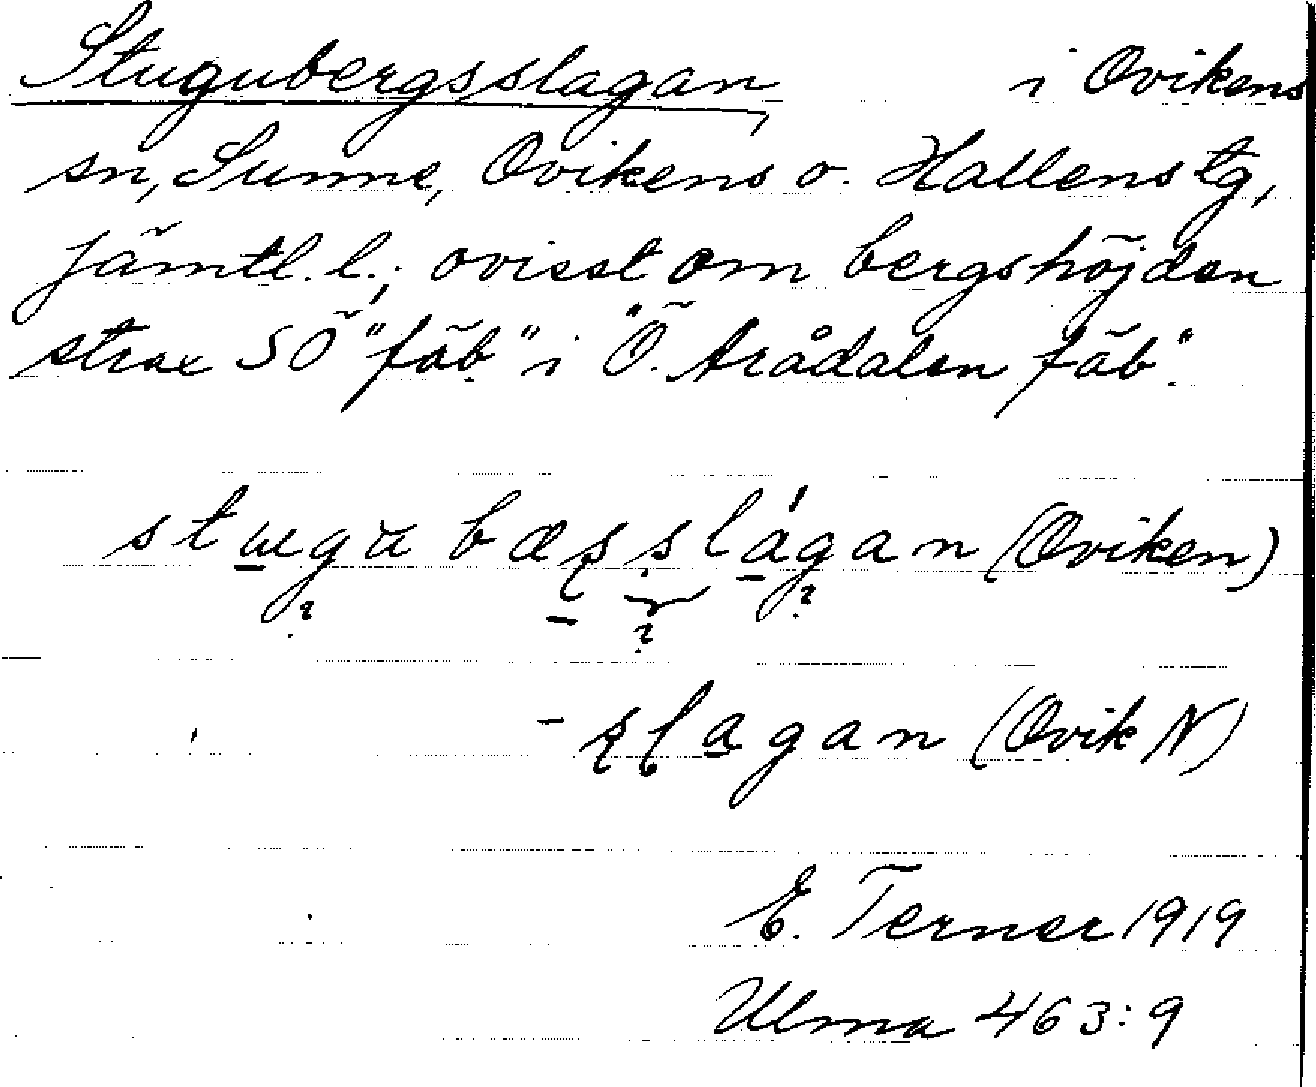 Stugubergsslagan, i Ovikens
sn, Sunne, Ovikens o. Hallens tg,
Jämtl. l.; ovisst om bergshöjden
strax SÖ "fäb." i "Ö. Arådalen fäb".
stɯga bæṣṣlágan (Oviken)
-ṣlagan (Ovik N)
E. Terner 1919
Ulma 463:9